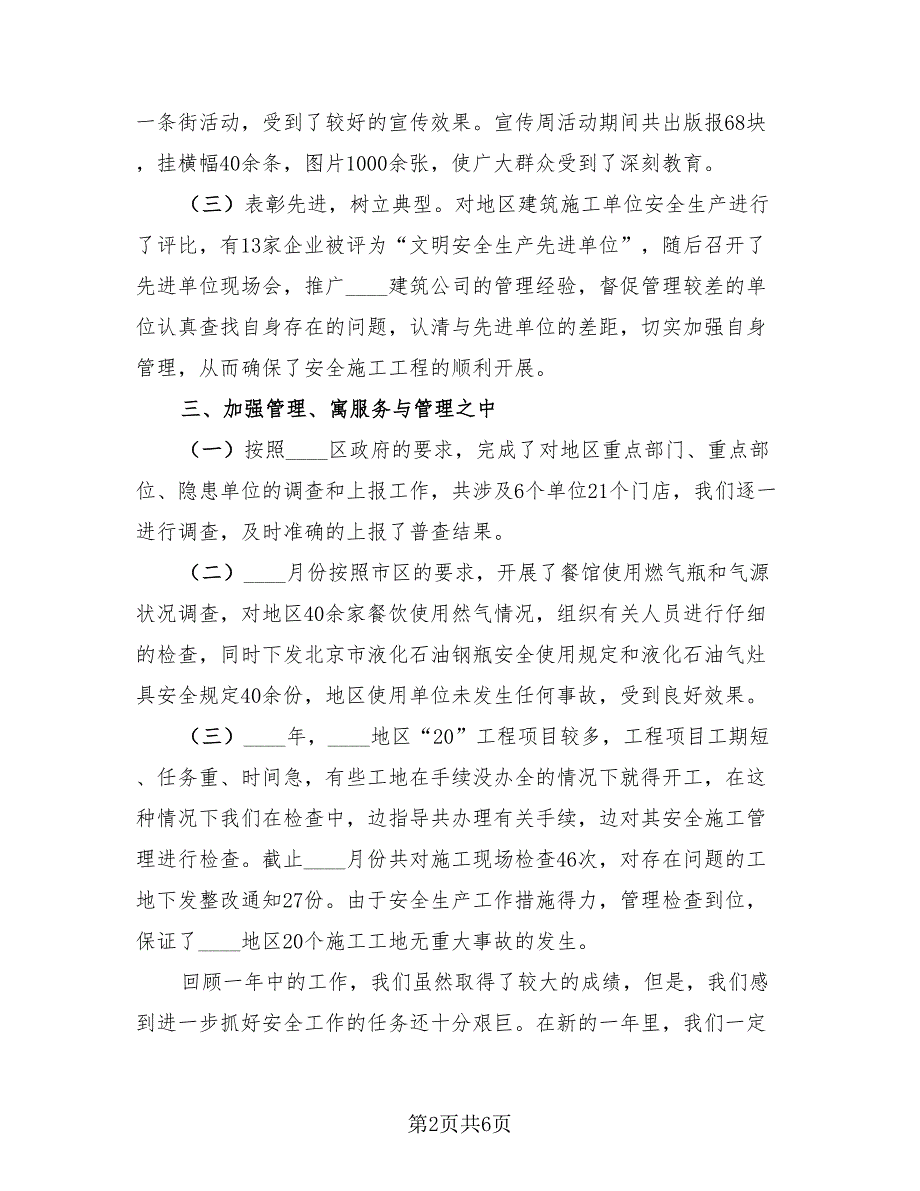 一条街活动，受到了较好的宣传效果。宣传周活动期间共出版报68块
，挂横幅40余条，图片1000余张，使广大群众受到了深刻教育。
（三）表彰先进，树立典型。对地区建筑施工单位安全生产进行
了评比，有13家企业被评为“文明安全生产先进单位”，随后召开了
先进单位现场会，推广____建筑公司的管理经验，督促管理较差的单
位认真查找自身存在的问题，认清与先进单位的差距，切实加强自身
管理，从而确保了安全施工工程的顺利开展。
三、加强管理、寓服务与管理之中
（一）按照____区政府的要求，完成了对地区重点部门、重点部
位、隐患单位的调查和上报工作，共涉及6个单位21个门店，我们逐一
进行调查，及时准确的上报了普查结果。
（二）____月份按照市区的要求，开展了餐馆使用燃气瓶和气源
状况调查，对地区40余家餐饮使用然气情况，组织有关人员进行仔细
的检查，同时下发北京市液化石油钢瓶安全使用规定和液化石油气灶
具安全规定40余份，地区使用单位未发生任何事故，受到良好效果。
（三）____年，____地区“20”工程项目较多，工程项目工期短
、任务重、时间急，有些工地在手续没办全的情况下就得开工，在这
种情况下我们在检查中，边指导共办理有关手续，边对其安全施工管
理进行检查。截止____月份共对施工现场检查46次，对存在问题的工
地下发整改通知27份。由于安全生产工作措施得力，管理检查到位，
保证了____地区20个施工工地无重大事故的发生。
回顾一年中的工作，我们虽然取得了较大的成绩，但是，我们感
到进一步抓好安全工作的任务还十分艰巨。在新的一年里，我们一定
第2页共6页